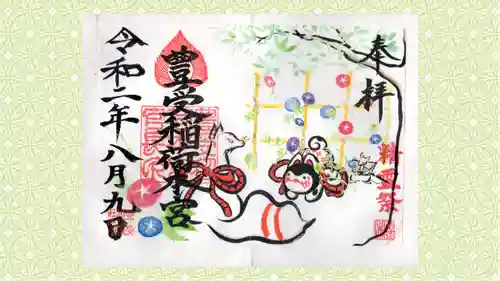 奉拝
精霊祭
豊受稲荷本宮
令和二年八月九日